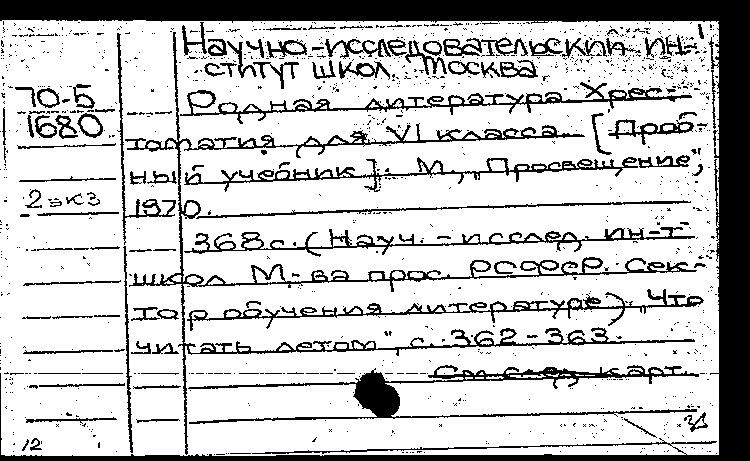 Научно-исследовательский ин-
ститут школ. Москва.
70-Б
1680
Родная литература. Хрес-
томатия для VI класса. [Проб-
ный учебник]. М., „Просвещение",
2 экз
1970.
368 с. (Науч.-исслед. ин-т
школ М-ва прос. РСФСР. Сек-
тор обучения литературе) „Что
читать летом", с. 362-363.
См след карт.
12